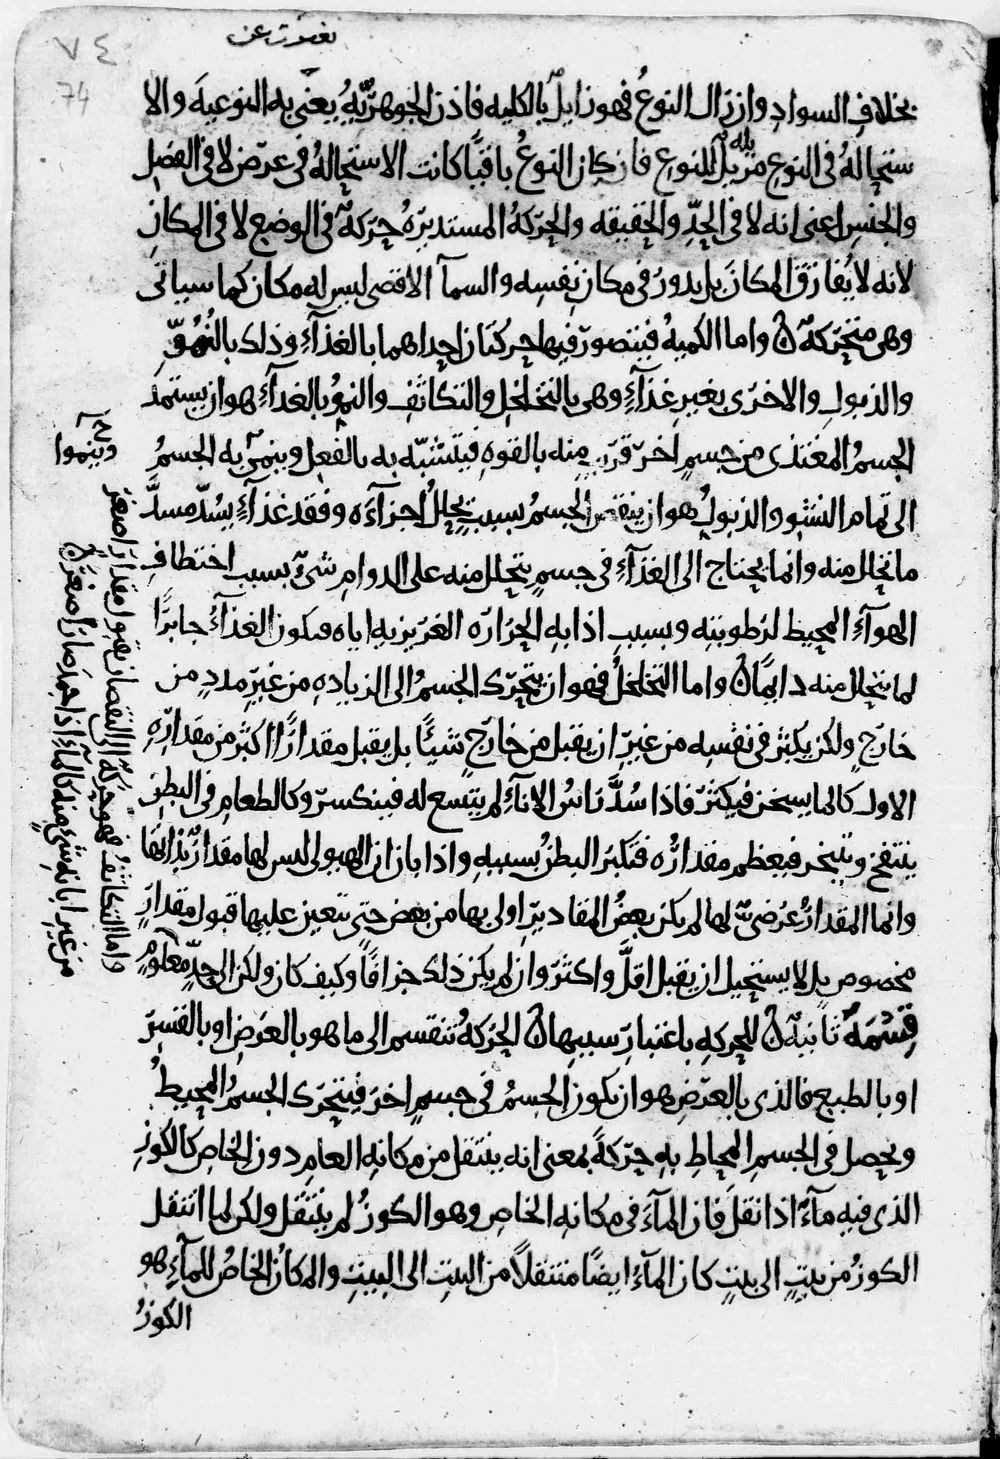 ٧٤
74
بخلاف السواد وان زال النوع فهو زايل بالكليه فاذن الجوهريّه يعنى به النوعيه والا
ستحاله فى النوع مزيله للنوع فان كان النوع باقيًا كانت الاستحاله فى عرض لا فى الفصل
والجنس اعنى انه لا فى الحدّ والحقيقه والحركه المستديره حركة فى الوضع لا فى المكان
لانه لا يُفارق المكان بل يدور فى مكان نفسه والسمآ الاقصى ليس له مكان كما سياتى
وهى متحركة ۞ واما الكميه فيتصور فيها حركتان احداهما بالغذآءِ وذلك بالنُمُوّ
والذبول والاخرى بغير غذآءٍ وهى بالتخلخل والتكاثف والنمو بالغدآءِ هو ان يستمد
الجسمُ المغتذى من جسمٍ اخر قريبٍ منه بالقوه فيتشبّه به بالفعل وينمى به الجسمُ
الى تمام النشو والذبولُ هو ان ينقص الجسمُ بسبب تحلل اجزآءه وفقد غذآءٍ يسُدّ مسدَّ
ما تحلل منه وانما يحتاج الى الغذآءِ فى جسمٍ يتحلل منه على الدوام شىءٌ بسبب اختطاف
الهوآءِ المحيط لرطوبته وبسبب اذابه الحراره الغريزيه اياه فيكون الغذآءُ جابرًا
لما يتحلل منه دايمًا ۞ واما التخلخلُ فهو ان يتحرّك الجسمُ الى الزياده من غير مددٍ من
خارج ولكن يكبر فى نفسه من غير ان يقبل من خارجٍ شيئًا بل يقبل مقدارًا اكثر من مقداره
الاول كالما يسخن فيكثر فاذا سُدَّ راسُ الاناءِ لم يتسع له فينكسر وكالطعام فى البطن
ينتفخ ويتبخر فيعظم مقدارُه فتكبر البطنُ بسببه واذا بان ان الهيولى ليس لها مقدارٌ بذاتها
وانما المقدارُ عرضىٌ لها لم يكن بعضُ المقادير اولى بها من بعض حتى يتعين عليها قبول مقدارٍ
مخصوص بل لا يستحيل ان يقبل اقلَّ واكثر وان لم يكن ذلك جزافًا وكيف كان ولكن الى حدٍّ معلومٍ
قسمةٌ ثانيةٌ ۞ للحركه باعتبار سببها ۞ الحركةُ تنقسم الى ما هو بالعرض او بالقسر
او بالطبع فالذى بالعرض هو ان يكون الجسمُ فى جسمٍ اخر فيتحرّك الجسمُ المحيطُ
ويحصل فى الجسم المحاطِ به حركةً بمعنى انه ينتقل من مكانه العام دون الخاص كالكوز
الذى فيه ماءٌ اذا نقل فان المآءَ فى مكانه الخاص وهو الكوزُ لم ينتقل ولكن لما انتقل
الكوزُ من بيتٍ الى بيتٍ كان المآءُ ايضًا منتقلاً من البيت الى البيت والمكانُ الخاصُ للمآءِ هو
الكوزُ
وينموا
واما التكاثفُ فهو حركةٌ الى النقصان بقبول مقدارٍ اصغر
من غير ابانه شىءٍ منه كالمآءِ اذا جمد صار اصغر ۞